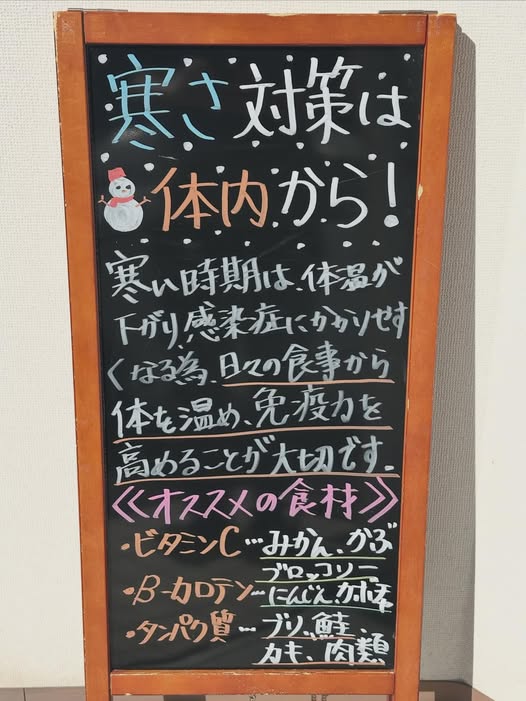 寒さ対策は
体内から!
寒い時期は、体温が
下がり、感染症にかかりやす
くなる為、日々の食事から
体を温め、免疫力を
高めることが大切です。
≪オススメの食材≫
・ビタミンC…みかん、かぶ
ブロッコリー
・β-カロテン…にんじん、かぼちゃ
・タンパク質…ブリ、鮭、
カキ、肉類